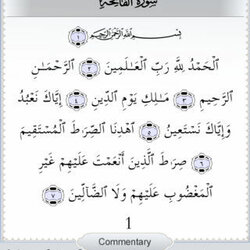 سورة الفاتحة
بِسْمِ ٱللَّهِ ٱلرَّحْمَٰنِ ٱلرَّحِيمِ ١
ٱلْحَمْدُ لِلَّهِ رَبِّ ٱلْعَٰلَمِينَ ٢ ٱلرَّحْمَٰنِ
ٱلرَّحِيمِ ٣ مَٰلِكِ يَوْمِ ٱلدِّينِ ٤ إِيَّاكَ نَعْبُدُ
وَإِيَّاكَ نَسْتَعِينُ ٥ ٱهْدِنَا ٱلصِّرَٰطَ ٱلْمُسْتَقِيمَ
٦ صِرَٰطَ ٱلَّذِينَ أَنْعَمْتَ عَلَيْهِمْ غَيْرِ
ٱلْمَغْضُوبِ عَلَيْهِمْ وَلَا ٱلضَّآلِّينَ ٧
1
Commentary